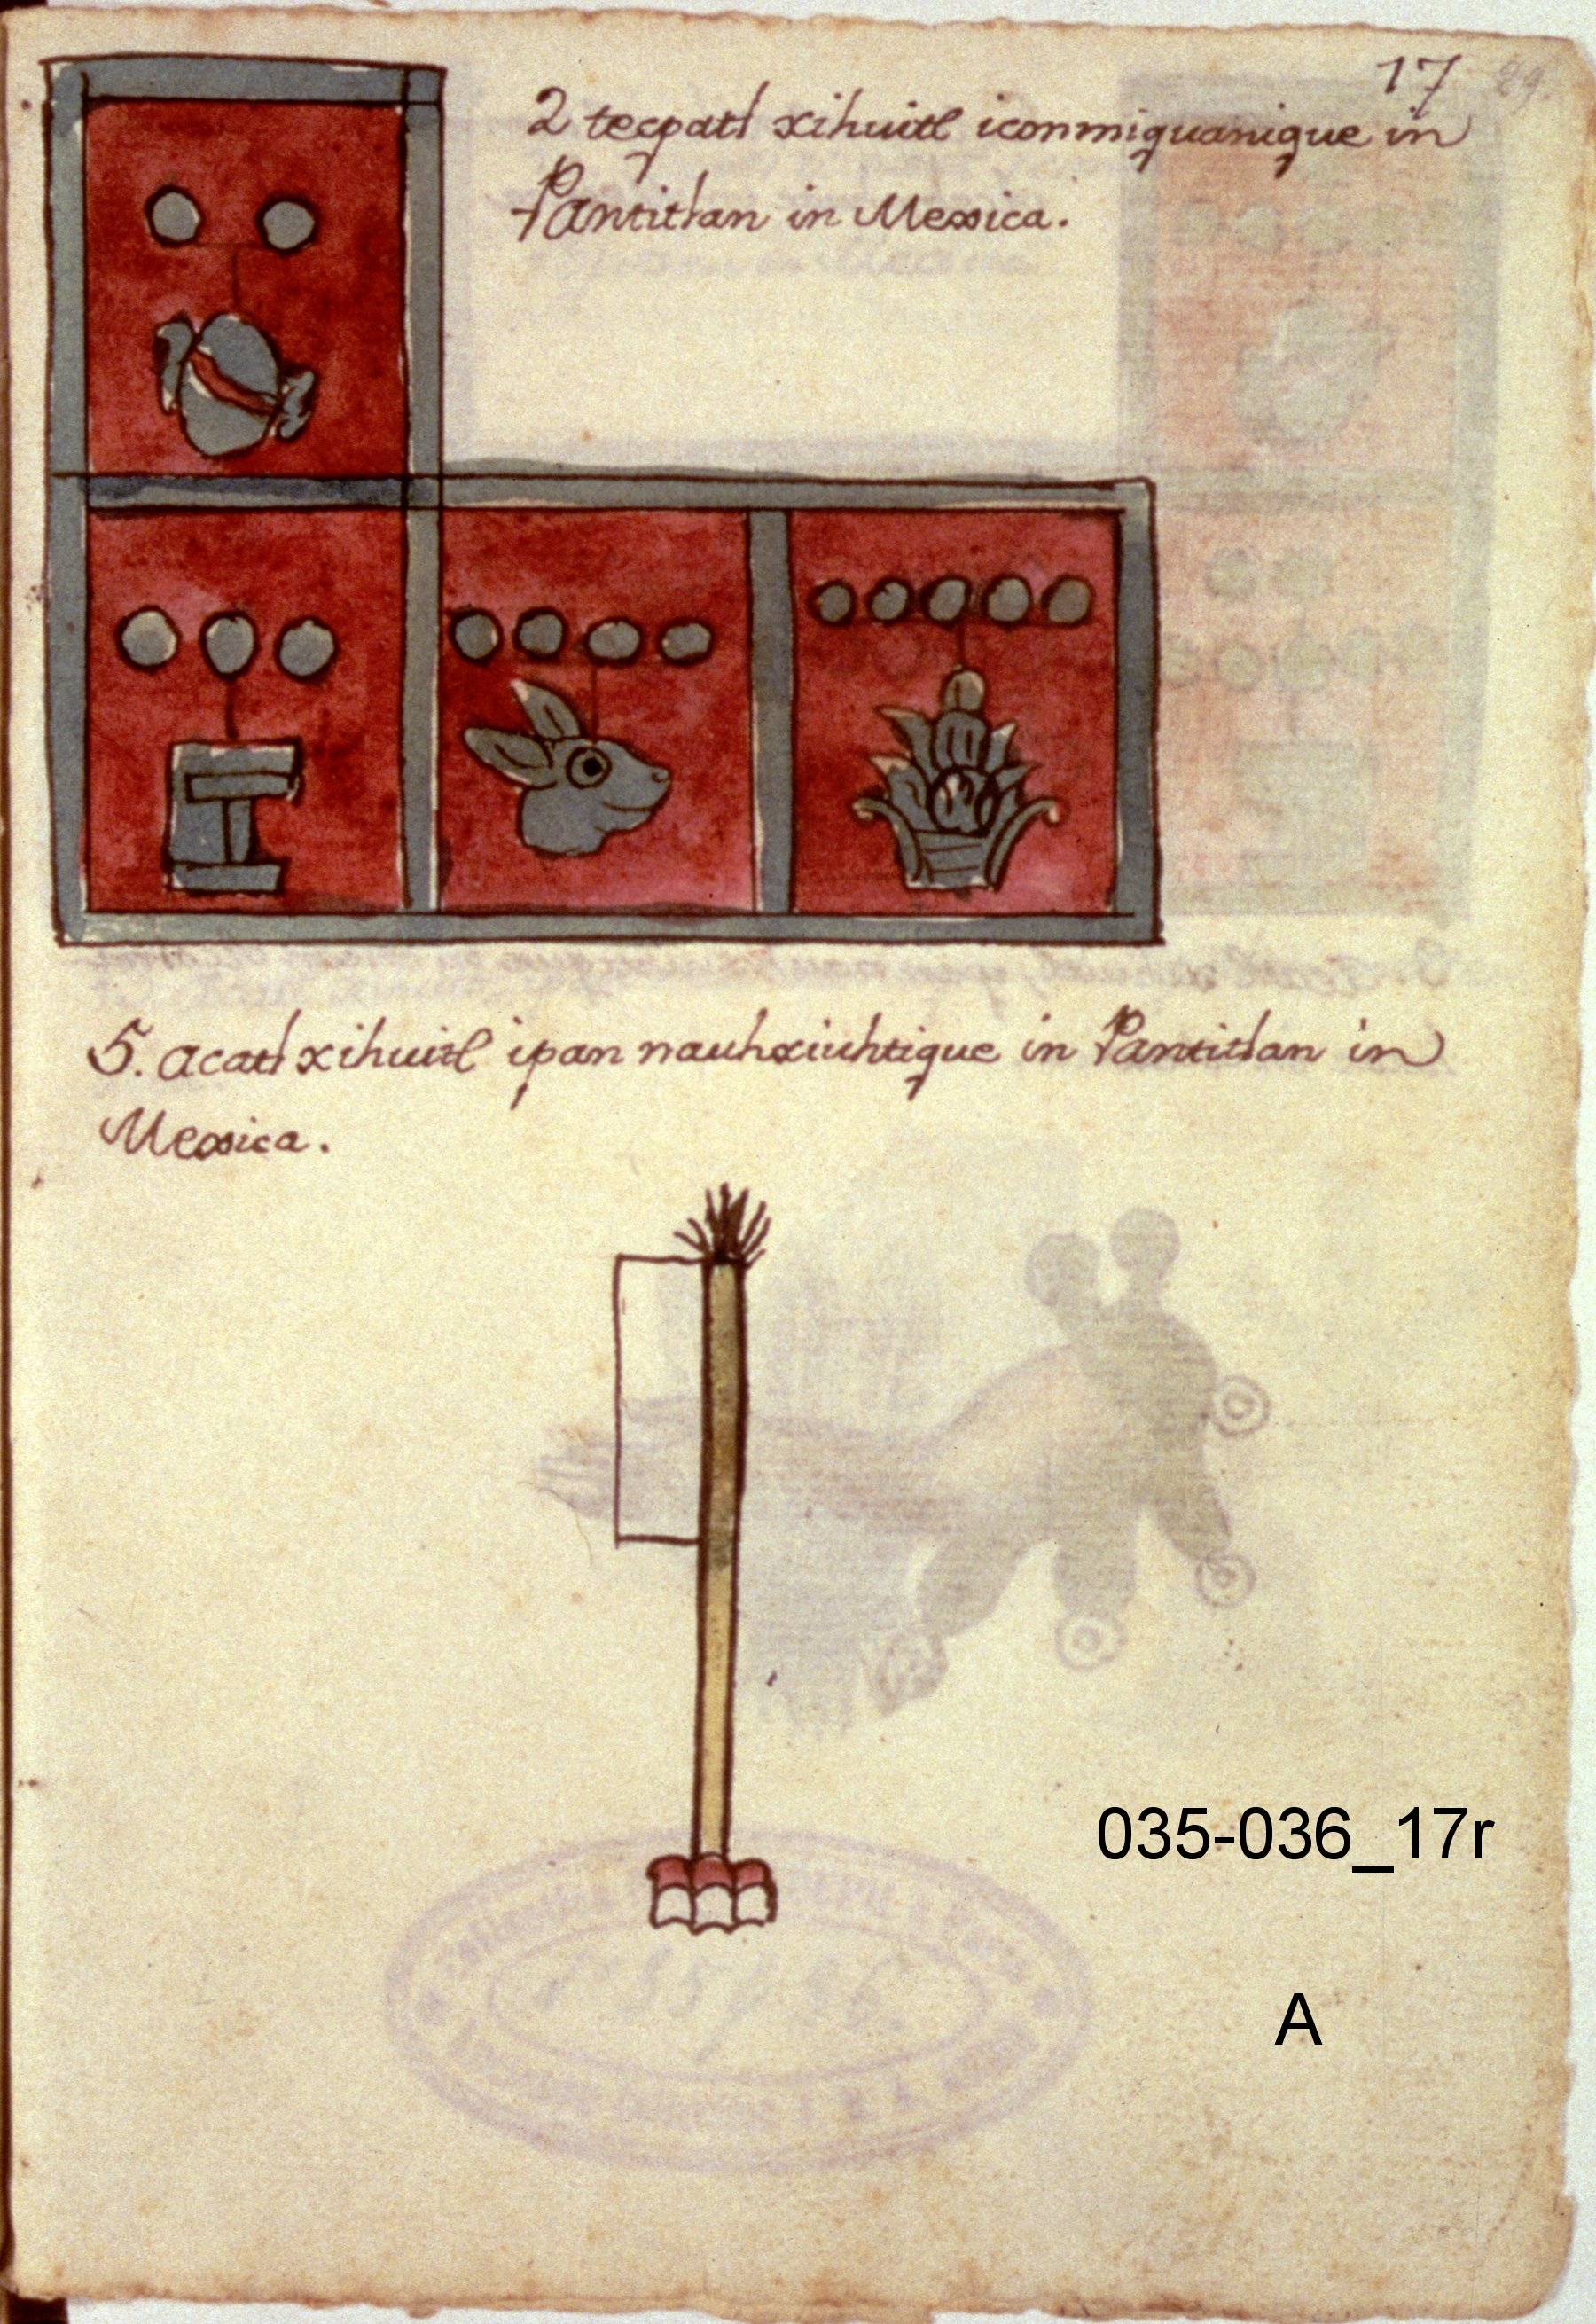 17
29.
2 tecpatl xihuitl iconmiquanique in
Pantitlan in Mexica.
5. acatl xihuitl ipan nauhxiuhtique in Pantitlan in
Mexica.
035-036_17r
A